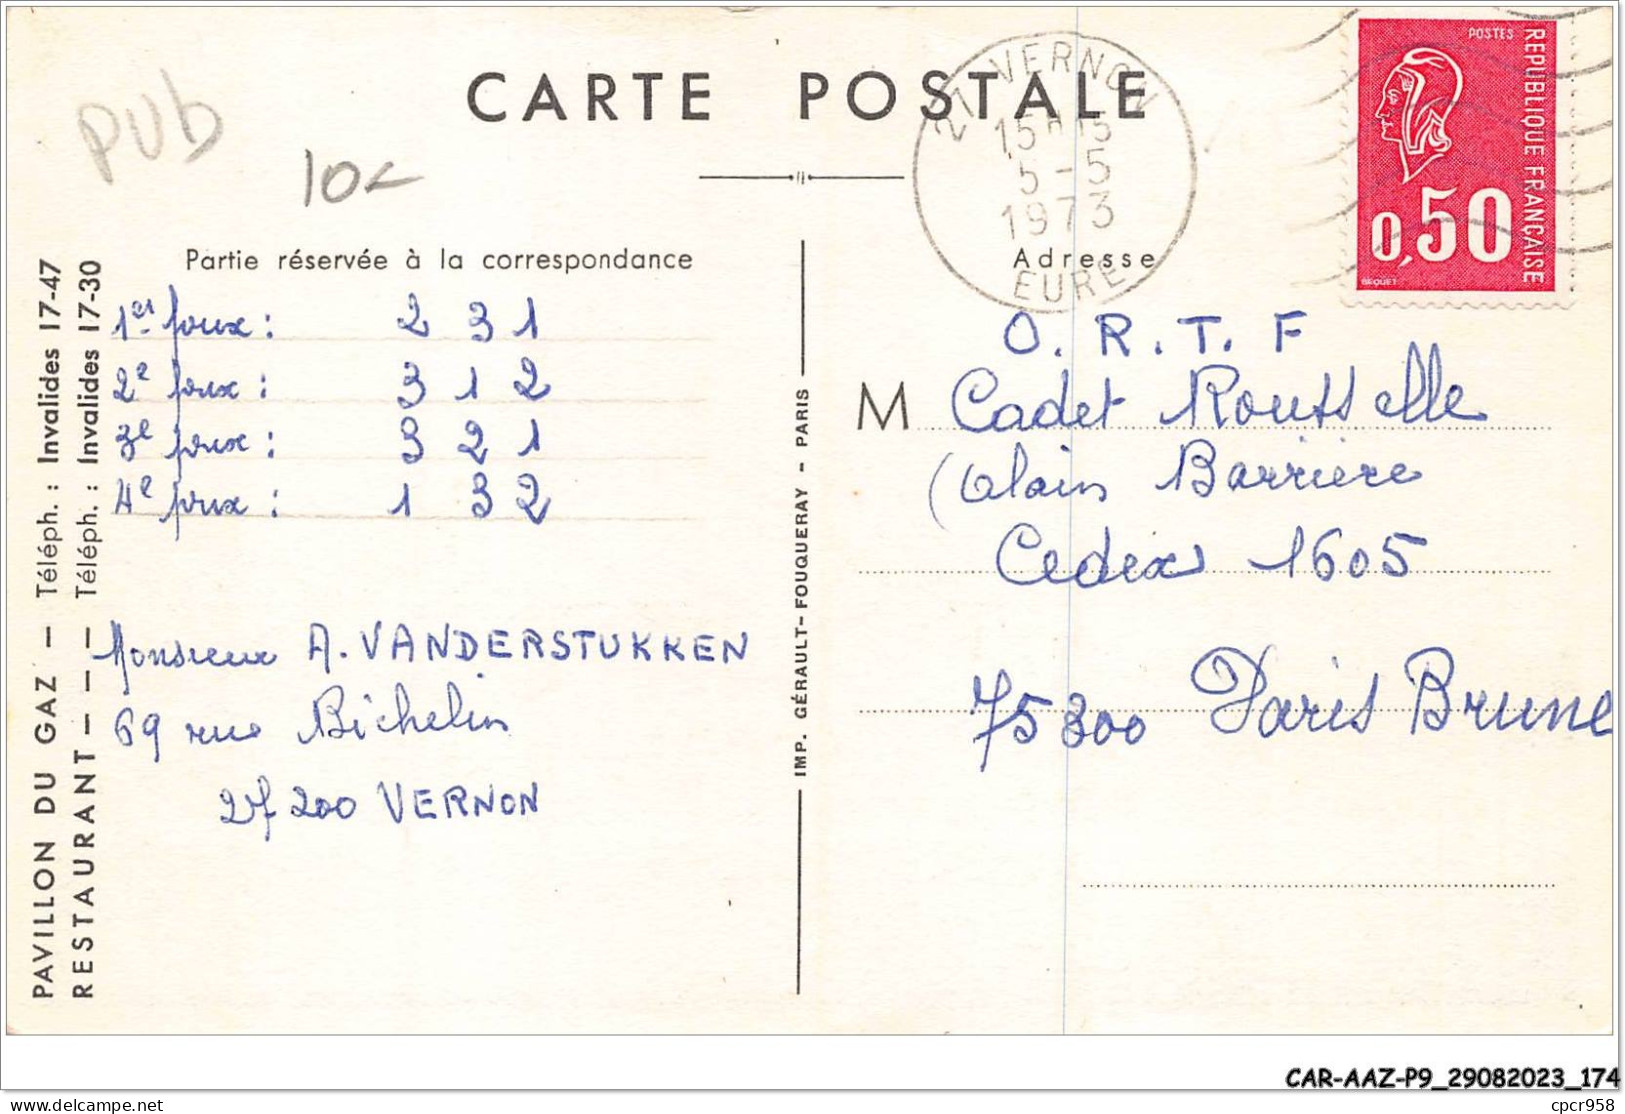 CARTE POSTALE
pub
10
27 VERNON
15H15
5-5
1973
EURE
POSTES
REPUBLIQUE FRANÇAISE
0,50
BEQUET
Partie réservée à la correspondance
1er jeux : 2 3 1
2e jeux : 3 1 2
3e jeux : 3 2 1
4e jeux : 1 3 2
Monsieur A. VANDERSTUKKEN
69 rue Bichelin
27200 VERNON
PAVILLON DU GAZ — Téléph. : Invalides 17-47
RESTAURANT — — — Téléph. : Invalides 17-30
IMP. GÉRAULT-FOUQUERAY - PARIS
Adresse
O. R. T. F
M Cadet Rousselle
(Alain Barriere
Cedex 1605
75300 Paris Brune
CAR-AAZ-P9_29082023_174
delcampe.net
cpcr958